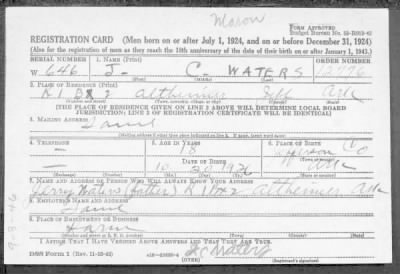 Mason
FORM APPROVED
REGISTRATION CARD (Men born on or after July 1, 1924, and on or before December 31, 1924)
(Also for the registration of men as they reach the 18th anniversary of the date of their birth on or after January 1, 1943.)
SERIAL NUMBER 1. NAME (Print) ORDER NUMBER
W 646 J- C. WATERS
2. PLACE OF RESIDENCE (Print)
R 1 Bx 2 Altheimer Jeff Ark
[THE PLACE OF RESIDENCE GIVEN ON LINE 2 ABOVE WILL DETERMINE LOCAL BOARD
JURISDICTION; LINE 2 OF REGISTRATION CERTIFICATE WILL BE IDENTICAL]
3. MAILING ADDRESS
Same
[Mailing address if other than place indicated on line 2. If same, insert word same]
4. TELEPHONE 5. AGE IN YEARS 6. PLACE OF BIRTH
18 Jefferson Co
DATE OF BIRTH
— 10 20 Ark
7. NAME AND ADDRESS OF PERSON WHO WILL ALWAYS KNOW YOUR ADDRESS
Jerry Waters (father) R 1 Bx 2 Altheimer Ark
8. EMPLOYER'S NAME AND ADDRESS
Same
9. PLACE OF EMPLOYMENT OR BUSINESS
Farm
I AFFIRM THAT I HAVE VERIFIED ABOVE ANSWERS AND THAT THEY ARE TRUE.
DSS Form 1 (Rev. 11-16-42) (OVER) J C Waters
(Registrant's signature)